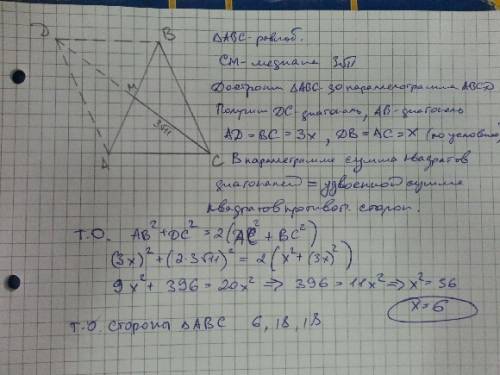 D
B
M
3√11
A
C
ΔABC - равноб.
CM - медиана 3√11
Достроим ΔABC до параллелограмма ABCD
Получим DC - диагональ, AB - диагональ
AD = BC = 3x, DB = AC = x (по условию)
В параграмме сумма квадратов
диагоналей = удвоенной сумме
квадратов противоп. сторон.
Т.О. AB² + DC² = 2(AC² + BC²)
(3x)² + (2·3√11)² = 2(x² + (3x)²)
9x² + 396 = 20x² ⇒ 396 = 11x² ⇒ x² = 36
x = 6
Т.О. стороны ΔABC 6, 18, 18